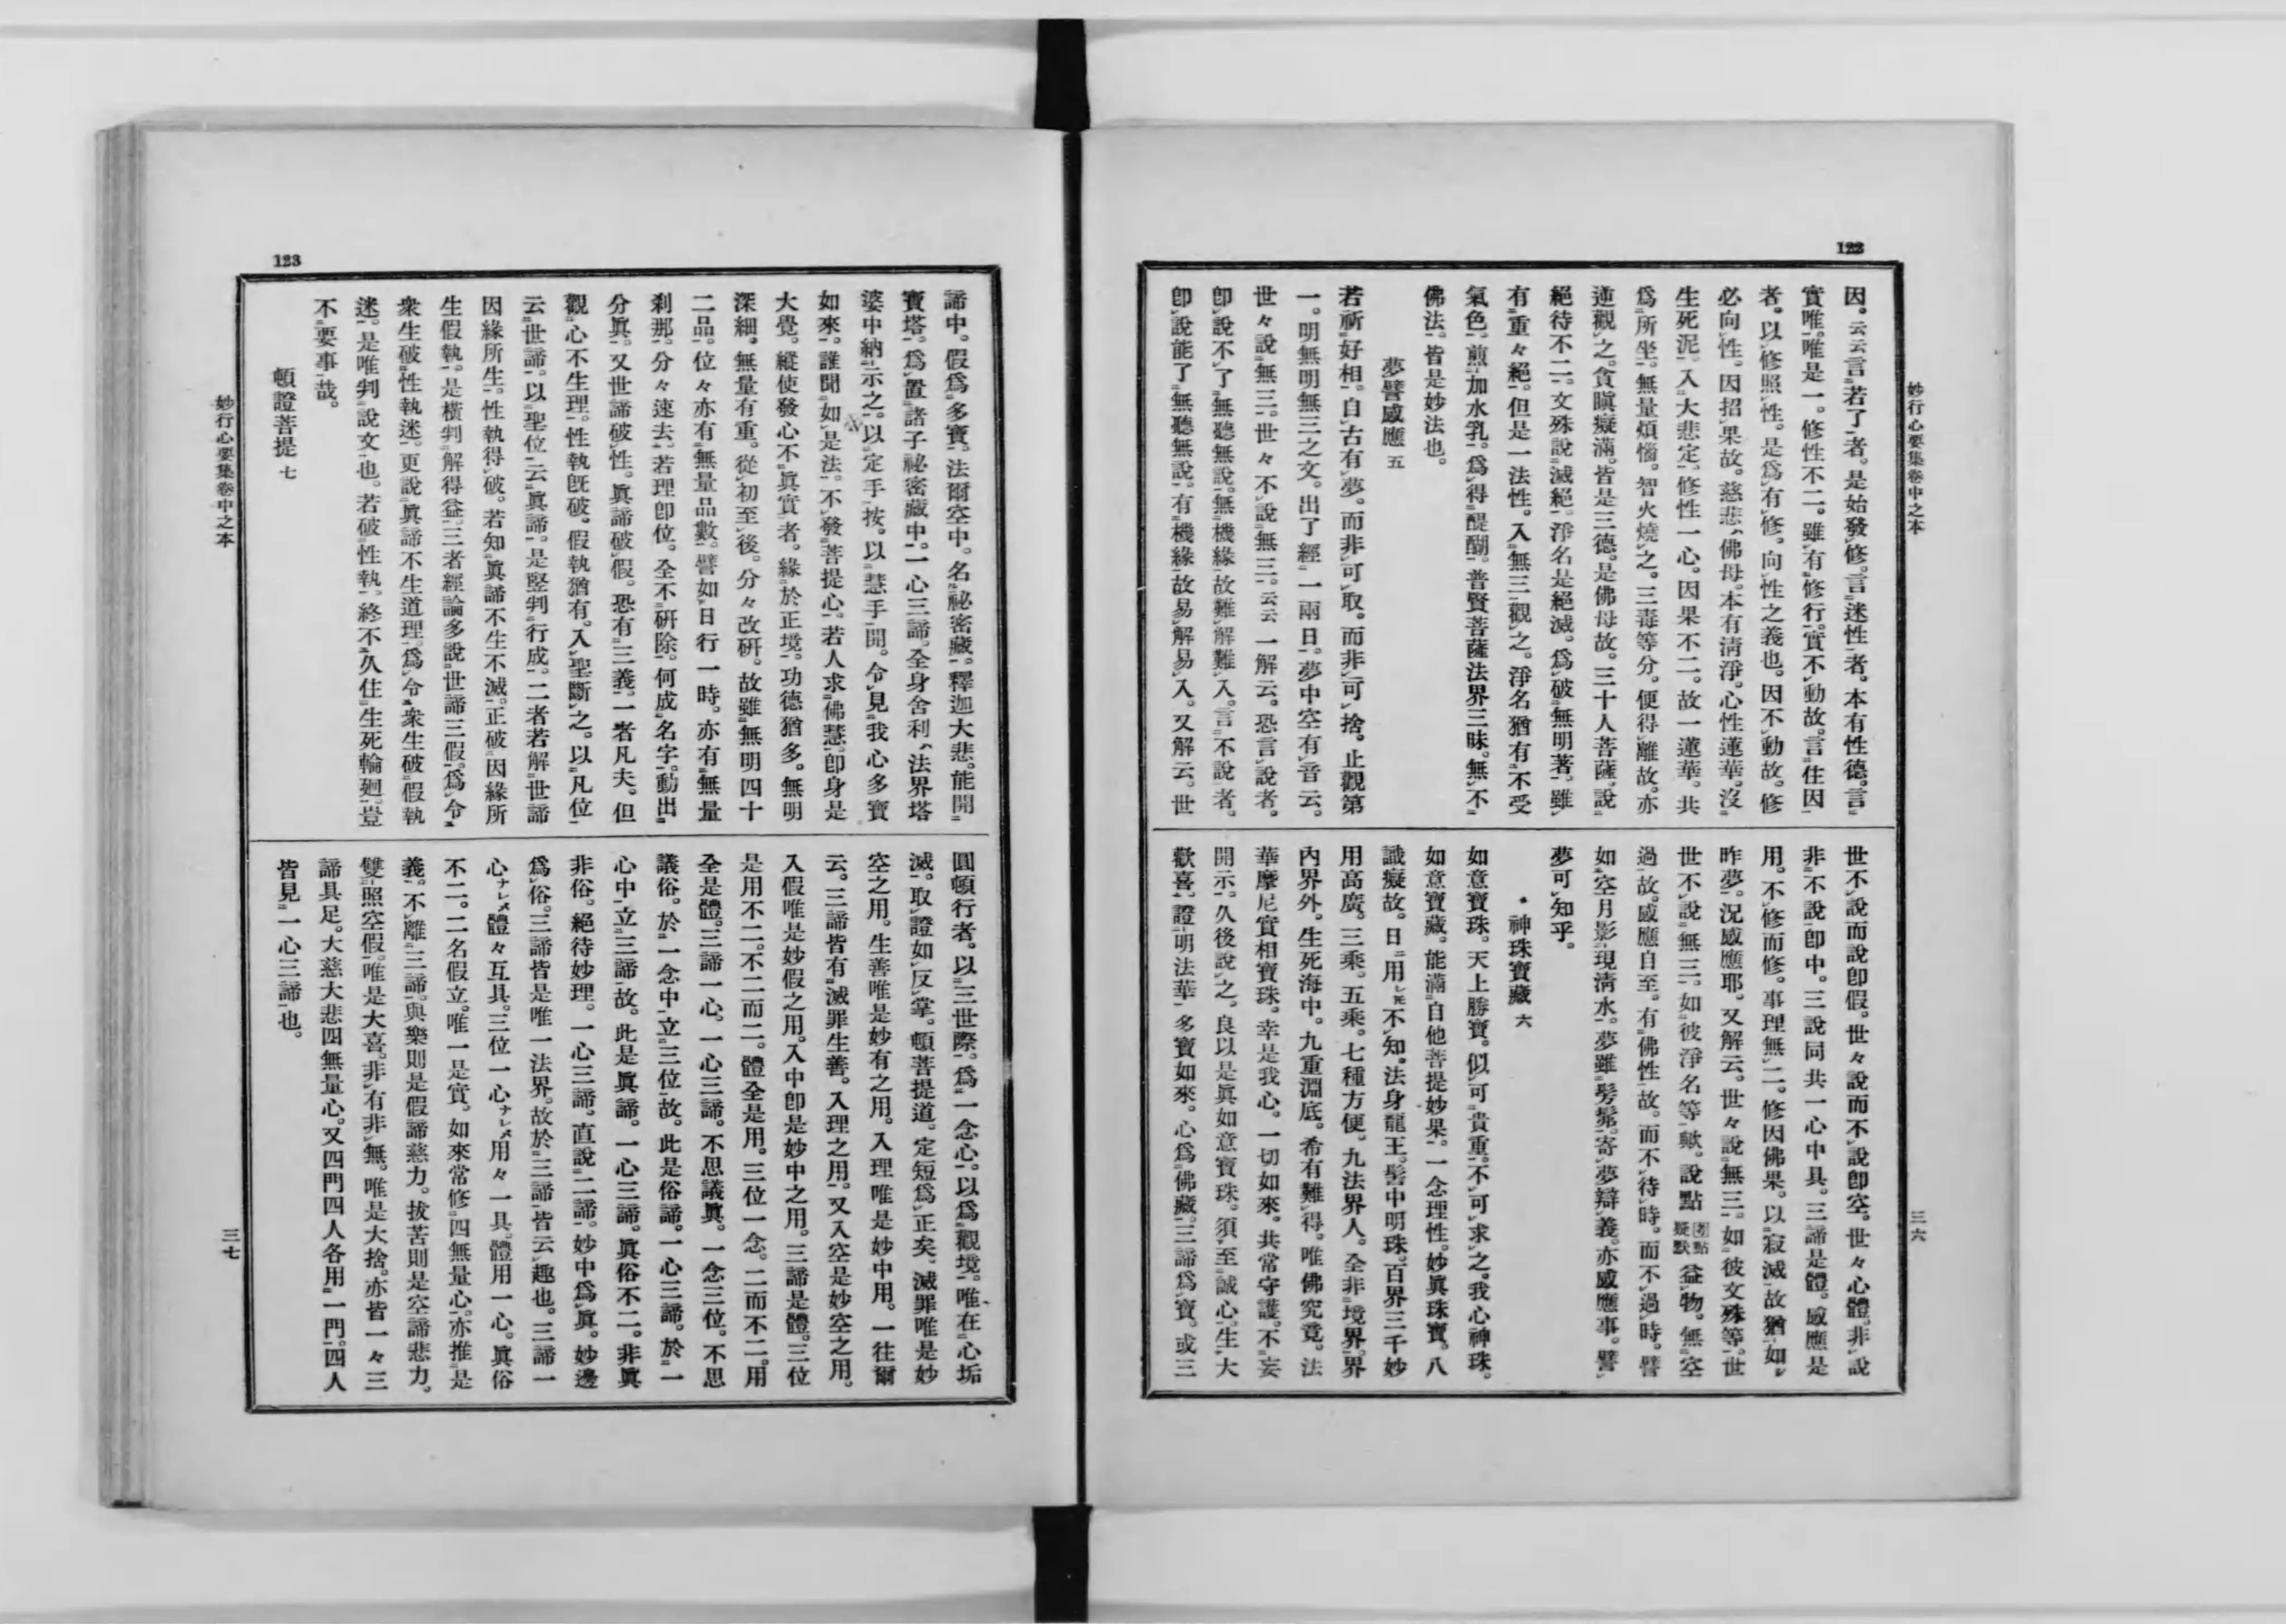 122
妙行心要集卷中之本
三六
因。云云言若了者。是始發修。言迷性者。本有性德。言
實唯。唯是一。修性不二。雖有修行。實不動故。言住因
者。以修照性。是爲有修。向性之義也。因不動故。修
必向性。因招果故。慈悲佛母。本有淸淨。心性蓮華。沒
生死泥。入大悲定。修性一心。因果不二。故一蓮華。共
爲所坐。無量煩惱。智火燒之。三毒等分。便得離故。亦
逆觀之。貪瞋癡滿。皆是三德。是佛母故。三十人菩薩。說
絕待不二。文殊說滅絕。淨名是絕滅。爲破無明著。雖
有重々絕。但是一法性。入無三觀之。淨名猶有不受
氣色。煎加水乳。爲得醍醐。普賢菩薩法界三昧。無不
佛法。皆是妙法也。
夢譬感應 五
若祈好相。自古有夢。而非可取。而非可捨。止觀第
一。明無明無三之文。出了經一兩日。夢中空有音云。
世々說無三。世々不說無三。云云一解云。恐言說者。
卽說不了無聽無說。無機緣故難解難入。言不說者。
卽說能了無聽無說。有機緣故易解易入。又解云。世
世不說而說卽假。世々說而不說卽空。世々心體。非說
非不說卽中。三說同共一心中具。三諦是體。感應是
用。不修而修。事理無二。修因佛果。以寂滅故猶如
昨夢。況感應耶。又解云。世々說無三。如彼文殊等。世
世不說無三。如彼淨名等歟。說點㘞點疑默益物。無空
過故。感應自至。有佛性故。而不待時。而不過時。譬
如空月影現淸水。夢雖髣髴。寄夢辯義。亦感應事。譬
夢可知乎。
神珠寶藏 六
如意寶珠。天上勝寶。似可貴重。不可求之。我心神珠。
如意寶藏。能滿自他菩提妙果。一念理性。妙眞珠寶。八
識癡故。日用レ𪜈不知。法身龍王。髻中明珠。百界三千妙
用高廣。三乘。五乘。七種方便。九法界人。全非境界。界
內界外。生死海中。九重淵底。希有難得。唯佛究竟。法
華摩尼實相寶珠。幸是我心。一切如來。共常守護。不妄
開示。久後說之。良以是眞如意寶珠。須至誠心。生大
歡喜。證明法華多寶如來。心爲佛藏。三諦爲寶。或三
123
妙行心要集卷中之本
三七
諦中。假爲多寶。法爾空中。名祕密藏。釋迦大悲。能開
寶塔。爲置諸子祕密藏中。一心三諦。全身舍利、法界塔
婆中納示之。以定手按。以慧手開。令見我心多寶
如來。誰聞如是法。不發菩提心。若人求佛慧。卽身是
大覺。縱使發心不眞實者。緣於正境。功德猶多。無明
深細。無量有重。從初至後。分々改硏。故雖無明四十
二品。位々亦有無量品數。譬如日行一時。亦有無量
刹那。分々速去。若理卽位。全不硏除。何成名字。動出
分眞。又世諦破性。眞諦破假。恐有三義。一者凡夫。但
觀心不生理。性執旣破。假執猶有。入聖斷之。以凡位
云世諦。以聖位云眞諦。是竪判行成。二者若解世諦
因緣所生。性執得破。若知眞諦不生不滅。正破因緣所
生假執。是橫判解得益。三者經論多說世諦三假。爲令
衆生破性執迷。更說眞諦不生道理。爲令衆生破假執
迷。是唯判說文也。若破性執。終不久住生死輪廻。豈
不要事哉。
頓證菩提 七
圓頓行者。以三世際。爲一念心。以爲觀境。唯在心垢
滅。取證如反掌。頓菩提道。定短爲正矣。滅罪唯是妙
空之用。生善唯是妙有之用。入理唯是妙中用。一往爾
云。三諦皆有滅罪生善。入理之用。又入空是妙空之用。
入假唯是妙假之用。入中卽是妙中之用。三諦是體。三位
是用不二。不二而二。體全是用。三位一念。二而不二。用
全是體。三諦一心。一心三諦。不思議眞。一念三位。不思
議俗。於一念中立三位故。此是俗諦。一心三諦。於一
心中立三諦故。此是眞諦。一心三諦。眞俗不二。非眞
非俗。絕待妙理。一心三諦。直說二諦。妙中爲眞。妙邊
爲俗。三諦皆是唯一法界。故於三諦皆云趣也。三諦一
心ナレメ體々互具。三位一心ナレメ用々一具。體用一心。眞俗
不二。二名假立。唯一是實。如來常修四無量心。亦推是
義。不離三諦。與樂則是假諦慈力。拔苦則是空諦悲力。
雙照空假。唯是大喜。非有非無。唯是大捨。亦皆一々三
諦具足。大慈大悲四無量心。又四門四人各用一門。四人
皆見一心三諦也。